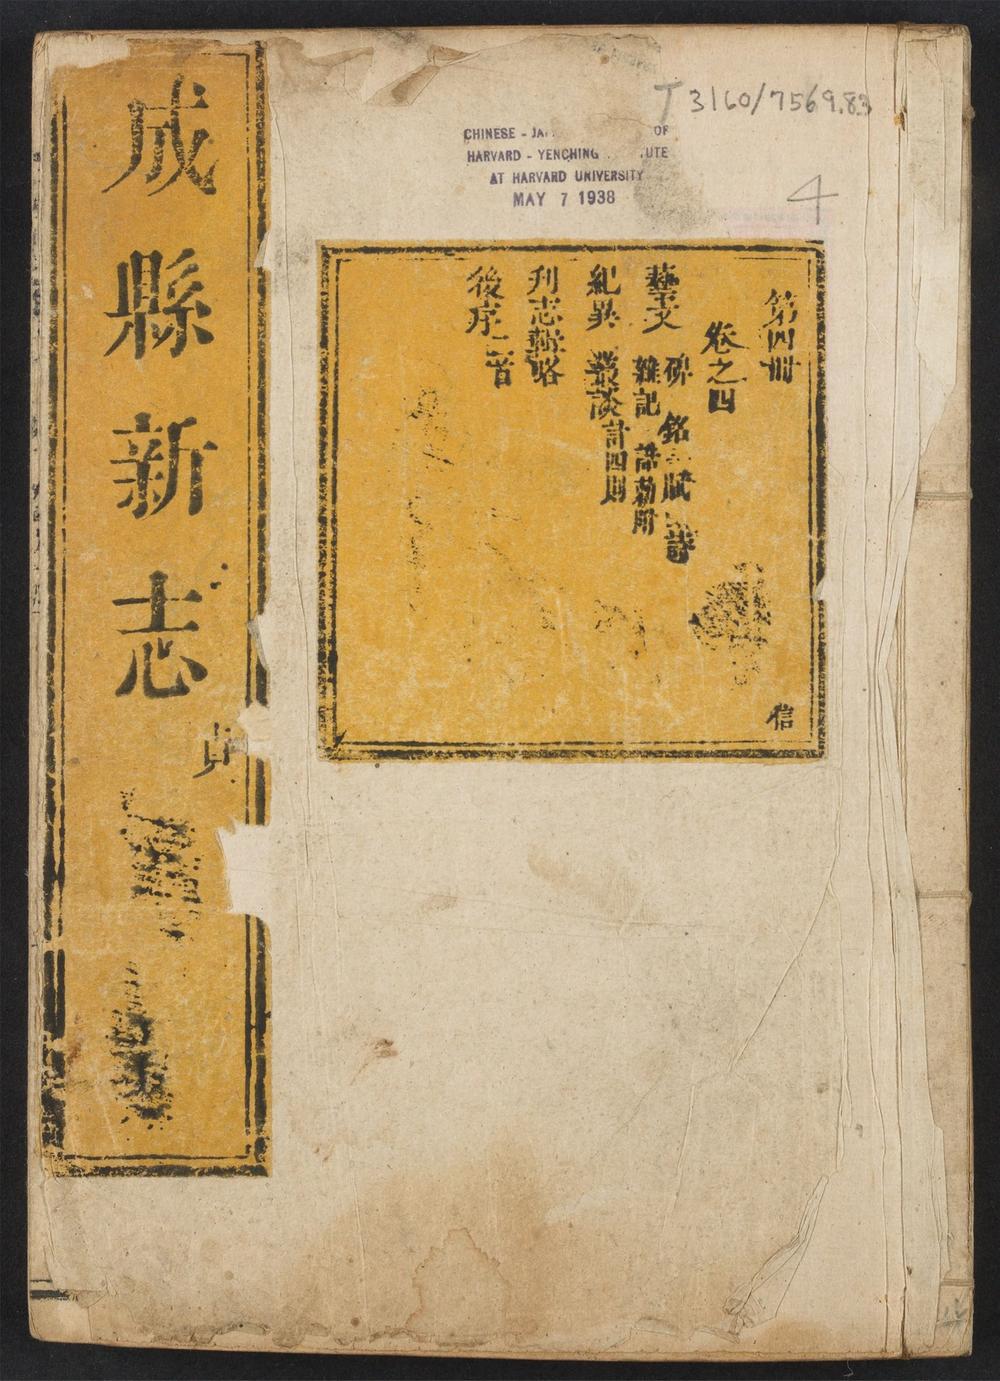 成縣新志
貞
T 3160/7569.83
CHINESE - JA OF
HARVARD - YENCHING UTE
AT HARVARD UNIVERSITY
MAY 7 1938
4
第四冊
卷之四
藝文 碑 銘 賦 詩
雜記 誥勅附
紀異 叢談計四則
刋志輯略
後序二首
信